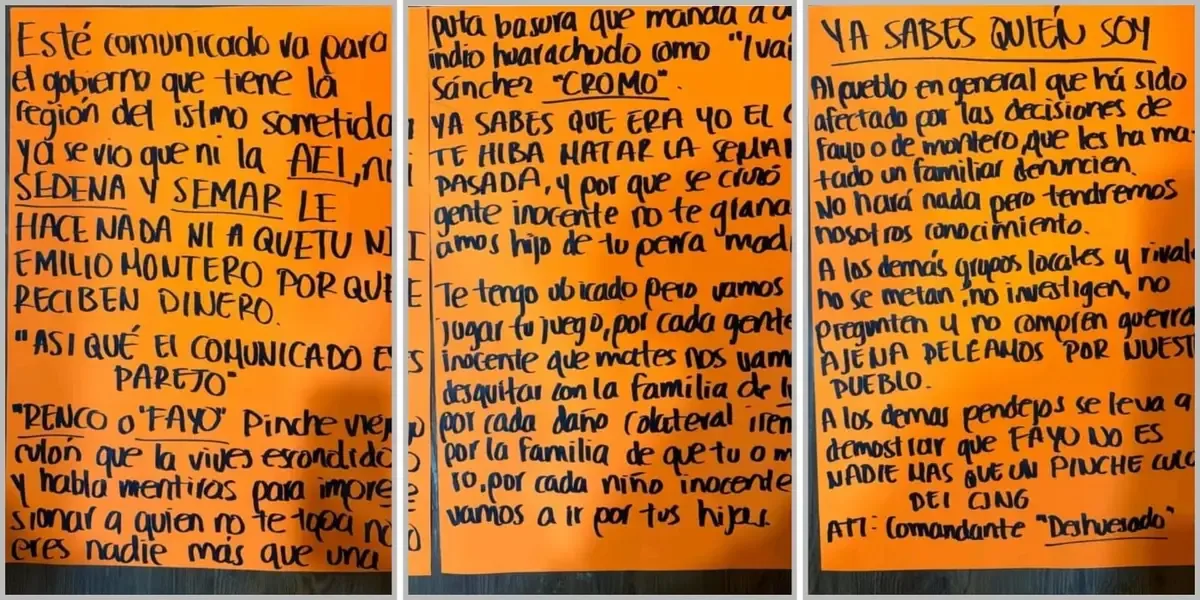 Esté comunicado va para
el gobierno que tiene la
región del istmo sometida
ya se vio que ni la AEI, ni
SEDENA Y SEMAR LE
HACE NADA NI A QUETU NI
EMILIO MONTERO POR QUE
RECIBEN DINERO.
"ASI QUÉ El COMUNICADO E
PAREJO"
"RENCO o "FAYO" Pinche viej
culón que la vives escondido
y habla mentiras para impre
sionar a quien no te topa no
eres nadie más que una
puta basura que manda a u
indio huarachudo como "Iva
Sánchez "CROMO".
YA SABES QUE ERA YO EL
TE HIBA MATAR LA SEMAN
PASADA, y por que se cruzó
gente inocente no te grana
amos hijo de tu perra mad
Te tengo ubicado pero vamos
jugar tu juego, por cada gente
inocente que mates nos vam
desquitar con la familia de
por cada daño colateral iren
por la familia de que tu o m
ro, por cada niño inocente
vamos a ir por tus hijas.
YA SABES QUIÉN SOY
Al pueblo en general que há sido
afectado por las decisiones de
fayo o de montero, que les ha ma
tado un familiar denuncien.
No hará nada pero tendremos
nosotros conocimiento.
A los demás grupos locales y rival
no se metan, no investigen, no
pregunten y no compren guerra
AJENA PELEAMOS POR NUEST
PUEBLO.
A los demas pendejos se leva a
demostrar que FAYO NO ES
NADIE MAS QUE UN PINCHE CULO
DEl CJNG
ATT: Comandante "Deshuesado"